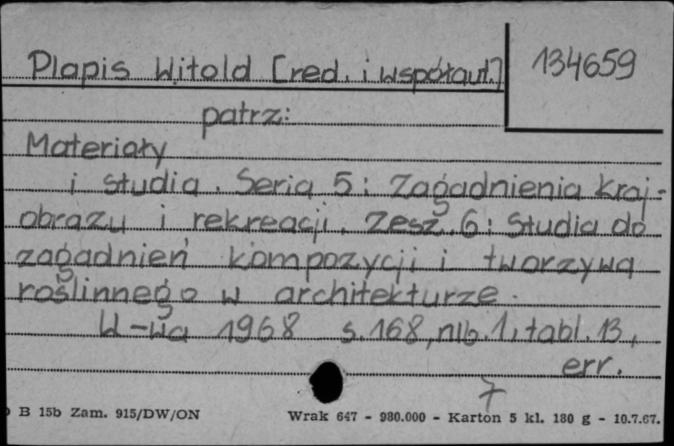 Plapis Witold [red. i współaut.] 134659
patrz:
Materiały
i studia. Seria 5: Zagadnienia kraj-
obrazu i rekreacji. Zesz. 6: Studia do
zagadnień kompozycji i tworzywa
roślinnego w architekturze.
W-wa 1968 s. 168, nlb. 1, tabl. 13,
err.
7
B 15b Zam. 915/DW/ON Wrak 647 - 980.000 - Karton 5 kl. 180 g - 10.7.67.